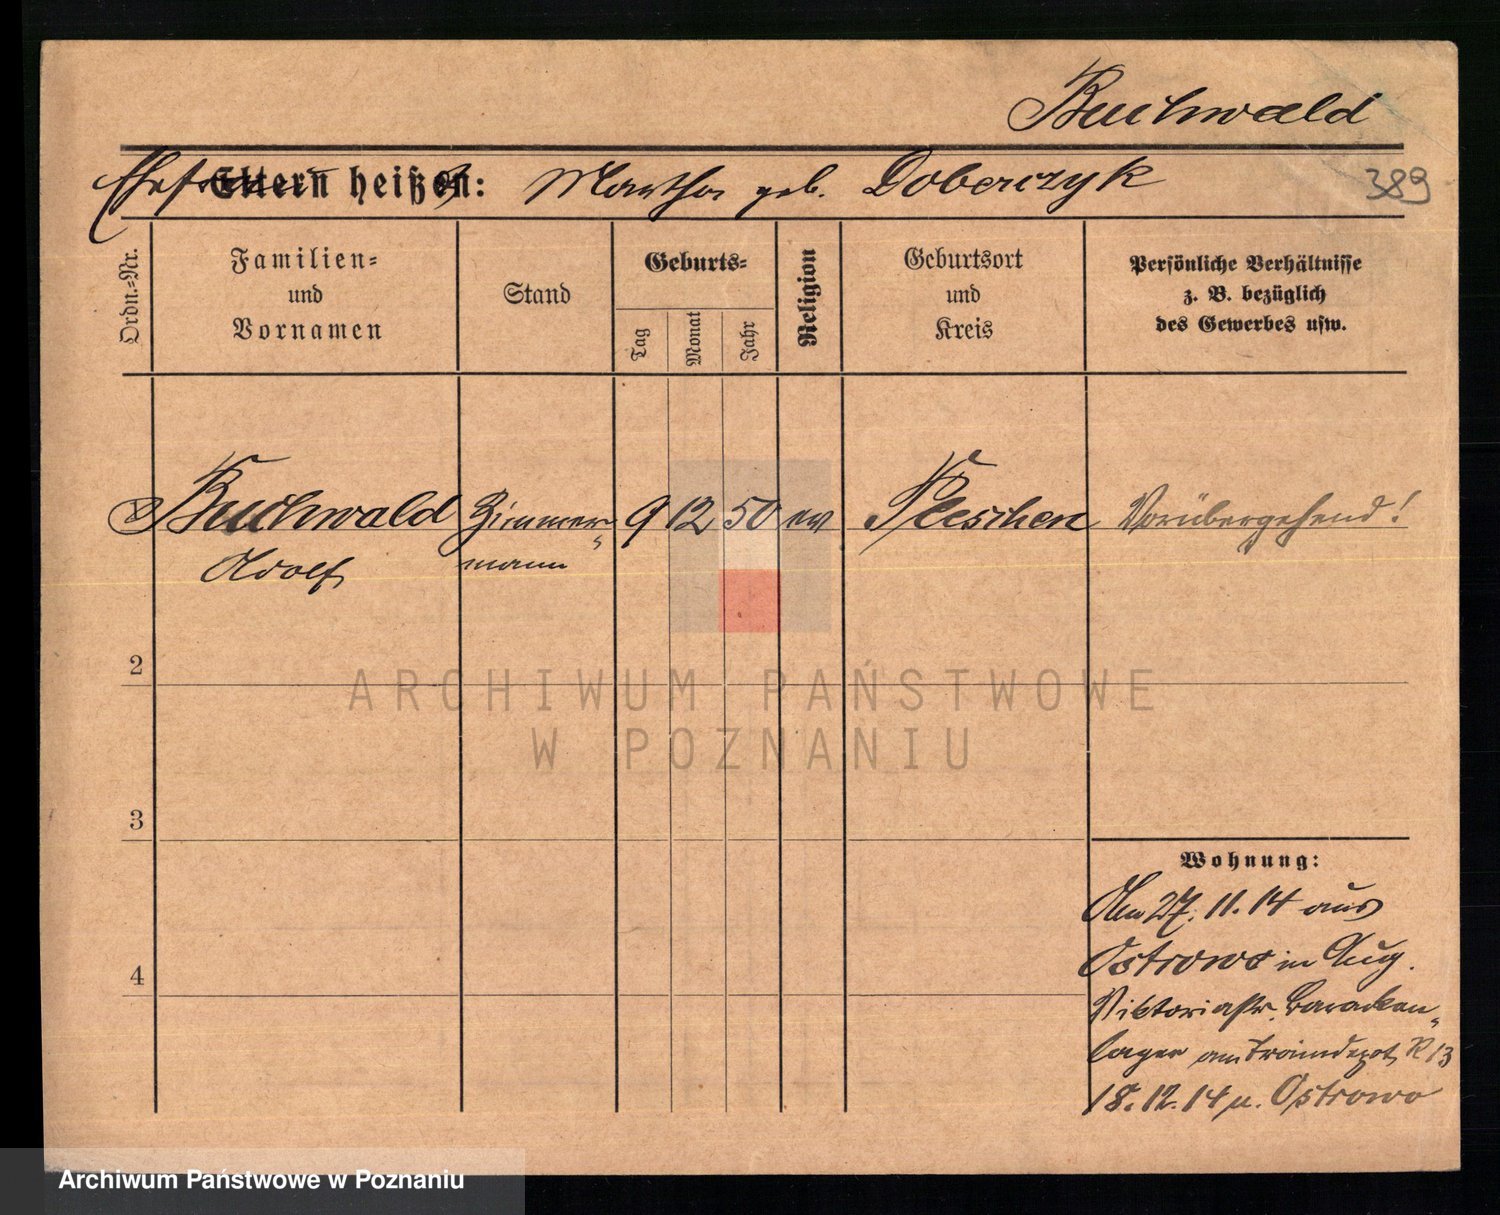 Buchwald
Ehefrau Eltern heißen: Martha geb. Doberczyk
389
Ordn.-Nr.
Familien-
und
Vornamen
Stand
Geburts-
Tag
Monat
Jahr
Religion
Geburtsort
und
Kreis
Persönliche Verhältnisse
z. B. bezüglich
des Gewerbes usw.
Buchwald Zimmer- 9 12 50 ev Pleschen Vorübergehend!
Adolf mann
2
ARCHIWUM PAŃSTWOWE
W POZNANIU
3
Wohnung:
Am 27. 11. 14 aus
4
Ostrowo in Aug.
Viktoriastr. Baracken-
lager am Traindepot R 13
18. 12. 14 n. Ostrowo
Archiwum Państwowe w Poznaniu